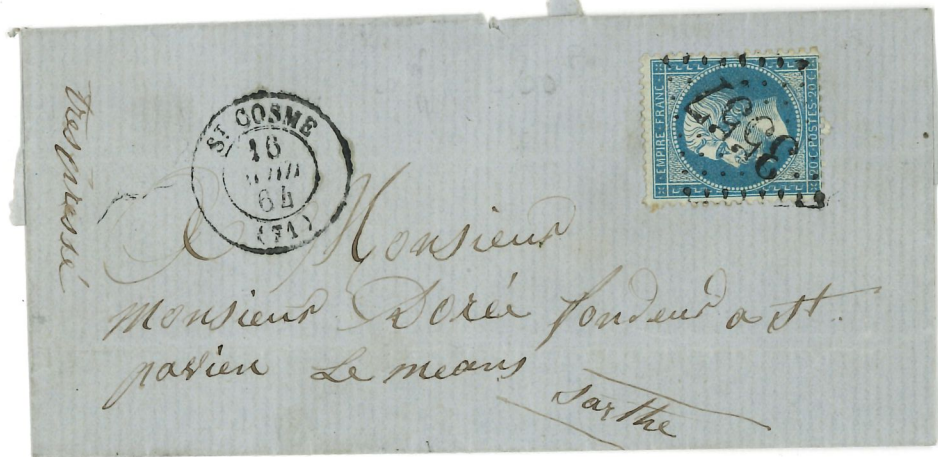 très pressé
ST COSME
16
64
(71)
EMPIRE FRANC
POSTES 20 C
20 C
A Monsieur
Monsieur Dorée fondeur a St
pavien Le means
Sarthe